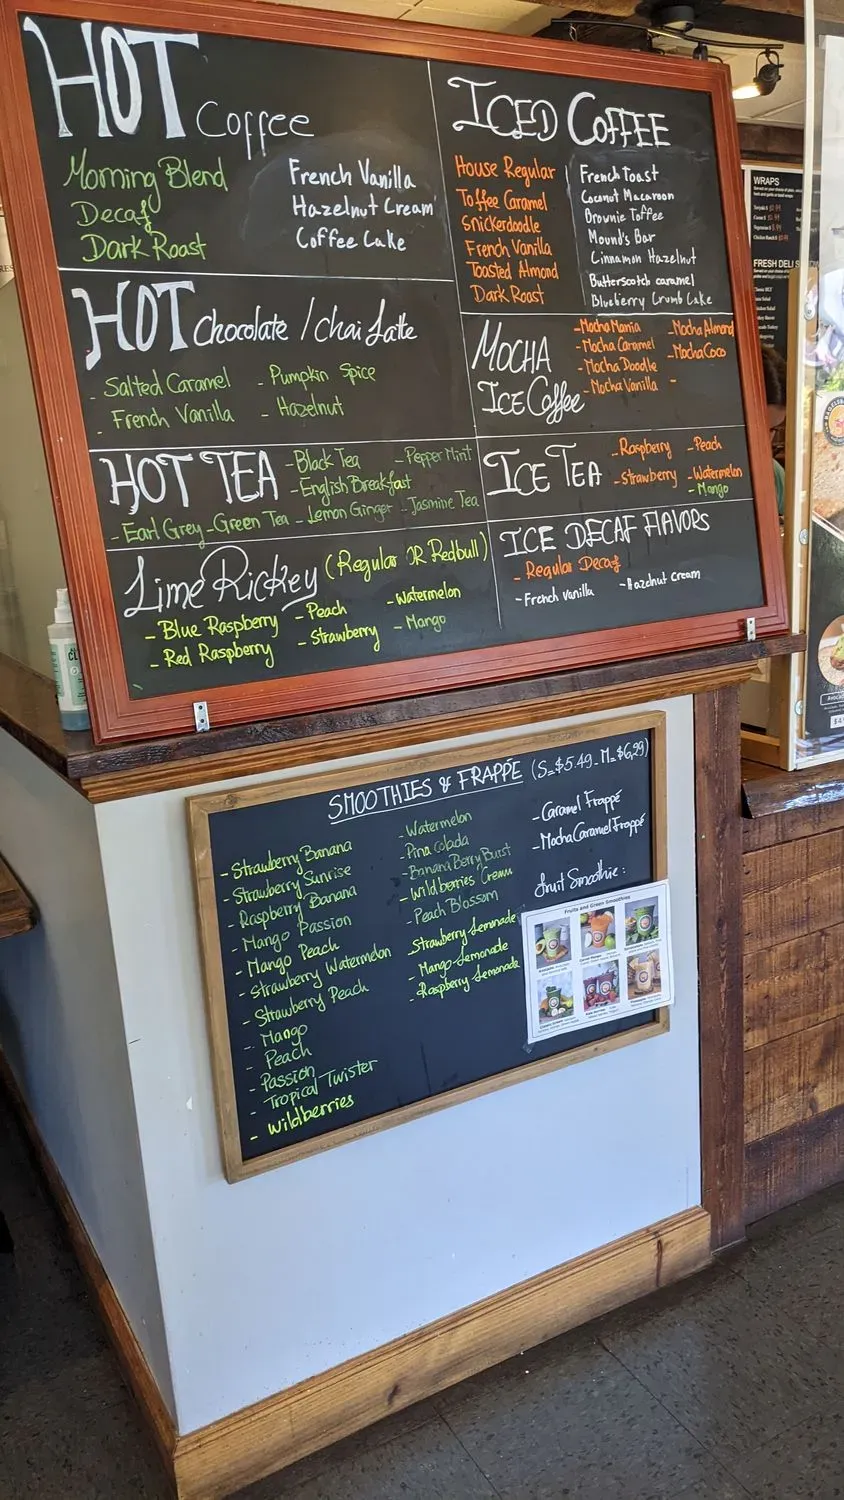 HOT Coffee
Morning Blend
Decaf
Dark Roast
French Vanilla
Hazelnut Cream
Coffee Cake
ICED COFFEE
House Regular
Toffee Caramel
Snickerdoodle
French Vanilla
Toasted Almond
Dark Roast
French toast
Coconut Macaroon
Brownie Toffee
Mound's Bar
Cinnamon Hazelnut
Butterscotch caramel
Blueberry Crumb Cake
HOT Chocolate / Chai Latte
- Salted Caramel
- French Vanilla
- Pumpkin Spice
- Hazelnut
MOCHA
ICE Coffee
- Mocha Mania
- Mocha Caramel
- Mocha Doodle
- Mocha Vanilla
- Mocha Almond
- Mocha Coco
-
HOT TEA
- Black Tea
- Pepper Mint
- English Breakfast
- Earl Grey - Green Tea - Lemon Ginger - Jasmine Tea
ICE TEA
- Raspberry
- Strawberry
- Peach
- Watermelon
- Mango
Lime Rickey (Regular OR Redbull)
- Blue Raspberry
- Red Raspberry
- Peach
- Strawberry
- Watermelon
- Mango
ICE DECAF FLAVORS
- Regular Decaf
- French vanilla
- Hazelnut cream
SMOOTHIES & FRAPPÉ (S=$5.49 - M=$6,29)
- Strawberry Banana
- Strawberry Sunrise
- Raspberry Banana
- Mango Passion
- Mango Peach
- Strawberry Watermelon
- Strawberry Peach
- Mango
- Peach
- Passion
- Tropical Twister
- Wildberries
- Watermelon
- Pina Colada
- Banana Berry Burst
- Wildberries Cream
- Peach Blossom
- Strawberry Lemonade
- Mango Lemonade
- Raspberry Lemonade
- Caramel Frappé
- Mocha Caramel Frappé
fruit Smoothie:
Fruits and Green Smoothies
WRAPS
FRESH DELI